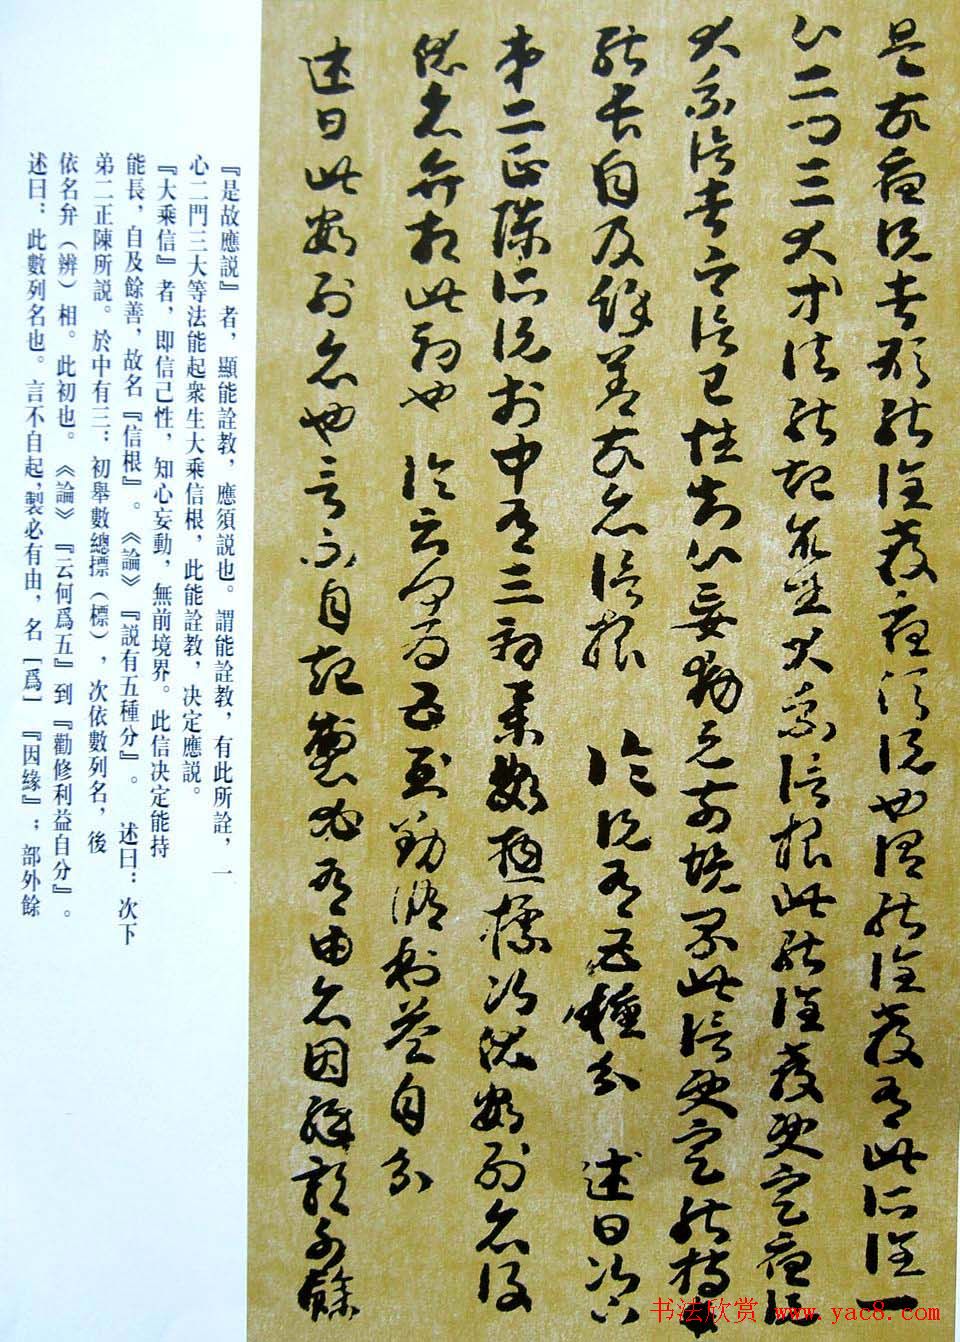 是故應説者顯能詮教應須説也謂能詮教有此所詮一
心二門三大等法能起衆生大乘信根此能詮教決定應説
大乘信者即信己性知心妄動無前境界此信決定能持
能長自及餘善故名信根 論説有五種分 述曰次下
弟二正陳所説於中有三初舉數總摽次依數列名後
依名弁相此初也 論云何爲五至勸修利益自分
述曰此數列名也言不自起製必有由名因緣部外餘
『是故應説』者，顯能詮教，應須説也。謂能詮教，有此所詮，一
心二門三大等法能起衆生大乘信根，此能詮教，决定應説。
『大乘信』者，即信己性，知心妄動，無前境界。此信决定能持
能長，自及餘善，故名『信根』。《論》『説有五種分』。 述曰：次下
弟二正陳所説。於中有三：初舉數總摽（標），次依數列名，後
依名弁（辨）相。此初也。《論》『云何爲五』到『勸修利益自分』。
述曰：此數列名也。言不自起，製必有由，名［爲］『因緣』；部外餘
书法欣赏 www.yac8.com